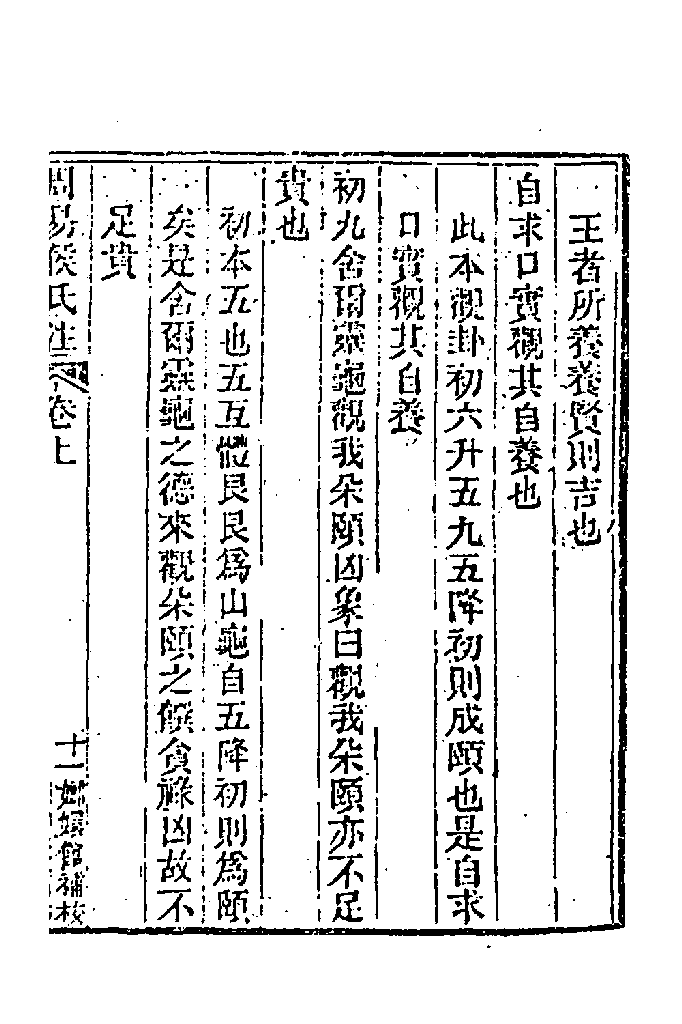 王者所養養賢則吉也
自求口實觀其自養也
此本觀卦初六升五九五降初則成頤也是自求
口實觀其自養
初九舍爾靈龜觀我朵頤凶象曰觀我朵頤亦不足
貴也
初本五也五互體艮艮爲山龜自五降初則爲頤
矣是舍爾靈龜之德來觀朵頤之饌貪祿凶故不
足貴
周易侯氏注 卷上
十一 嫏嬛館補校